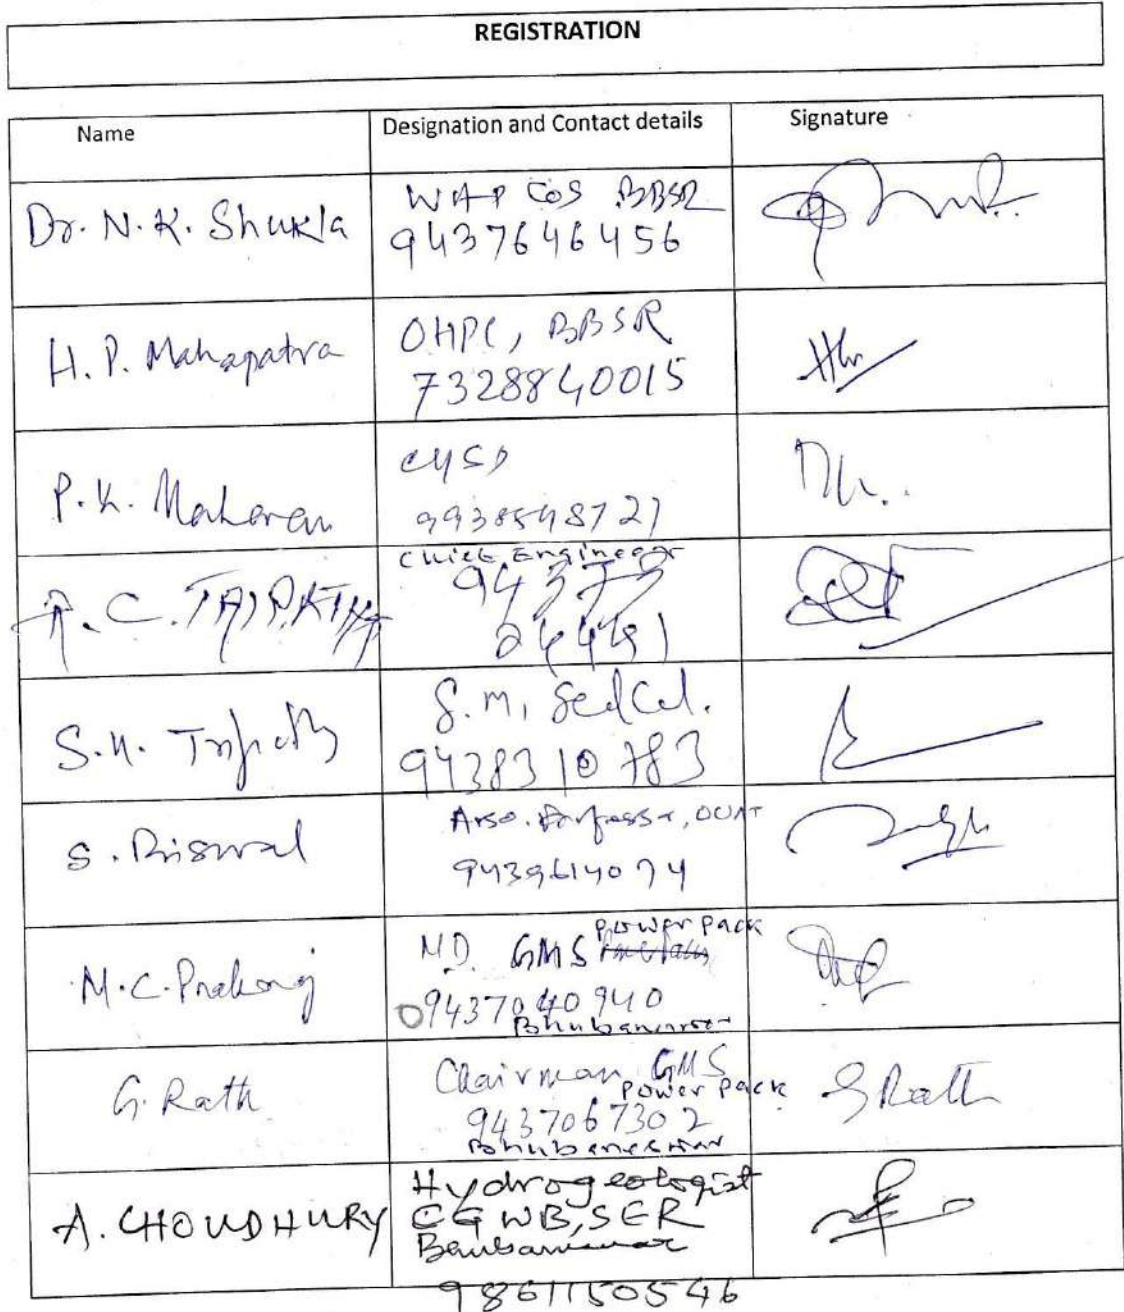 REGISTRATION
Name
Designation and Contact details
Signature
Dr. N. K. Shukla
WAPCOS BBSR
9437646456
H. P. Mahapatra
OHPC, BBSR
7328840015
P. K. Maharan
CYSD
9938548721
Chief Engineer
94373
C.
S.K. Tripathy
9438310783
S. Biswal
Asso. Professor, OUAT
9439614074
M.C.
MD. GMS Power Pack
09437040940
Bhubaneswar
G. Rath
Chairman GMS
Power Pack
9437067302
Bhubaneswar
G Rath
A. CHOUDHURY
Hydrogeologist
CGWB, SER
Bhubaneswar
9861150546